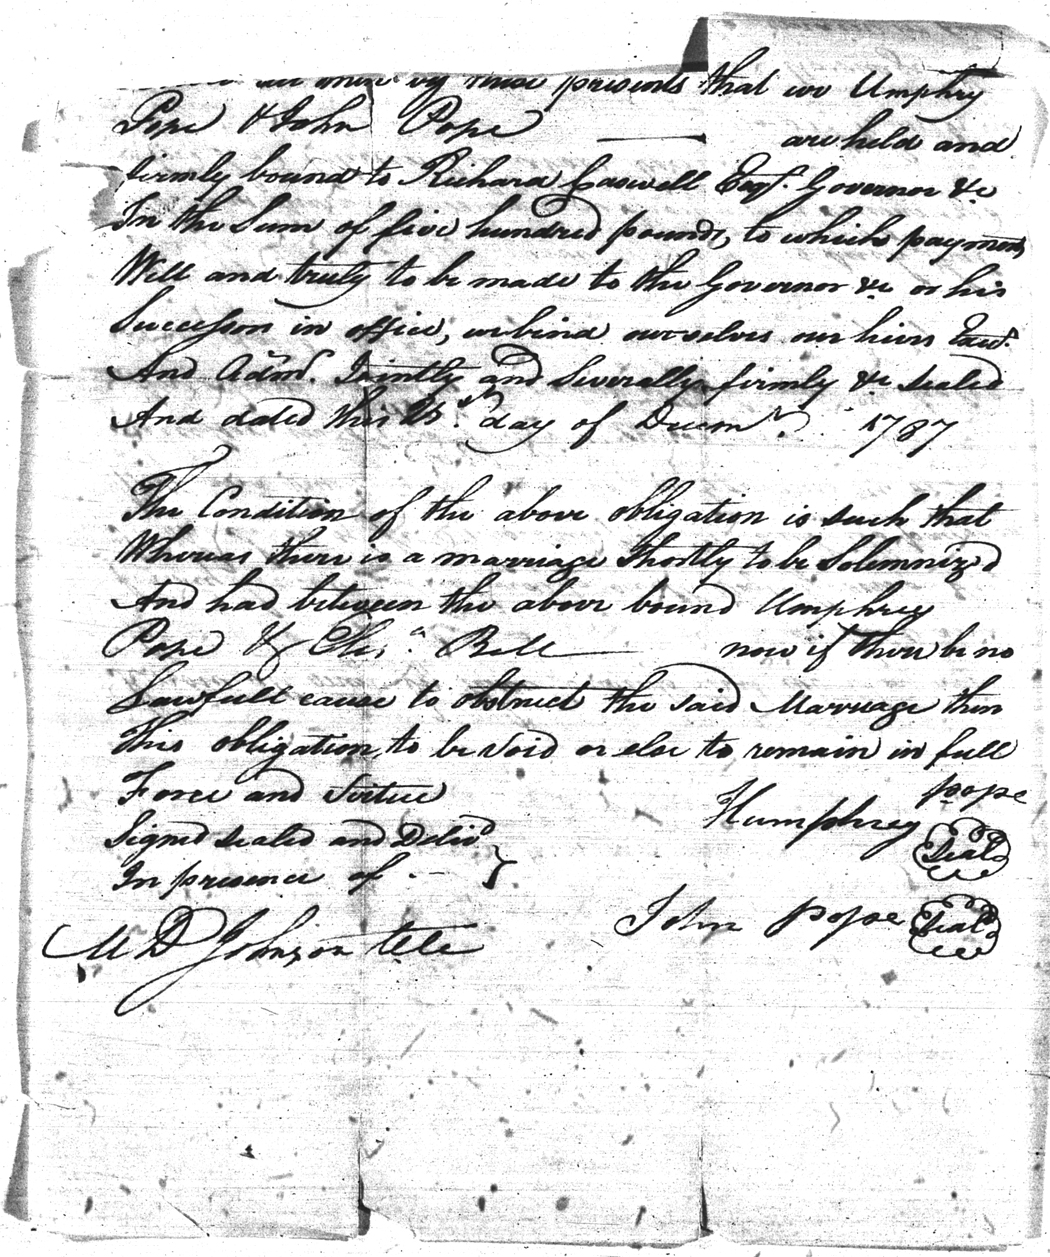 all men by these presents that we Umphry
Pope & John Pope — are held and
firmly bound to Richard Caswell Esqr. Governor &c
In the Sum of five hundred pounds, to which payment
Well and truly to be made to the Governor &c or his
Successors in office, we bind ourselves our heirs Exrs.
And Admrs. Jointly and Severally firmly &c Sealed
And dated this 25th day of Decemr. 1787
The Condition of the above obligation is such that
Whereas there is a marriage Shortly to be Solemnized
And had between the above bound Umphrey
Pope & Elisa. Bell — now if there be no
Lawfull cause to obstruct the said Marriage then
This obligation to be void or else to remain in full
Force and Virtue
Humphrey pope Seal
Signed Sealed and Delivd
In presence of
John pope Seal
M D Johnson